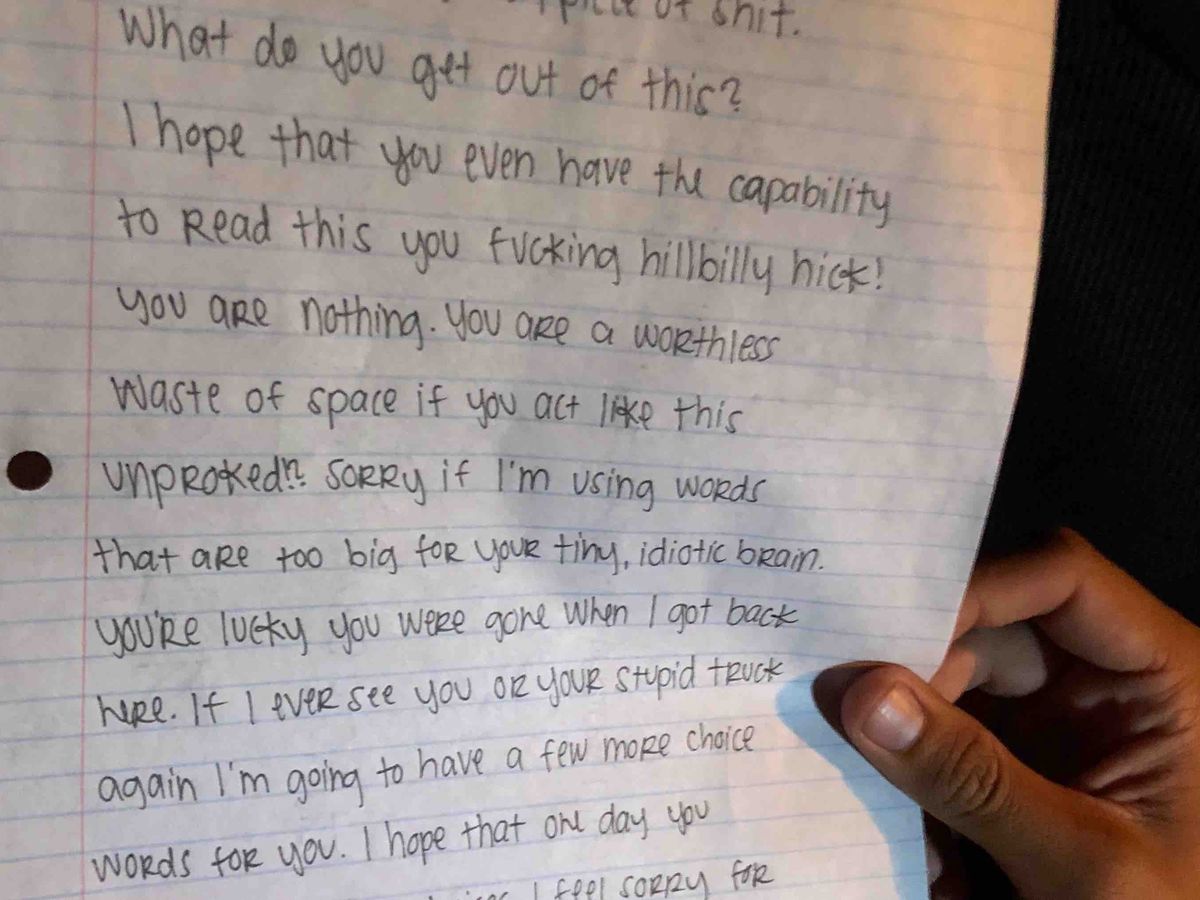 of shit.
What do you get out of this?
I hope that you even have the capability
to Read this you fucking hillbilly hick!
you are nothing. You are a worthless
waste of space if you act like this
unproked!? Sorry if I'm using words
that are too big for your tiny, idiotic brain.
you're lucky you were gone when I got back
here. If I ever see you or your stupid truck
again I'm going to have a few more choice
words for you. I hope that one day you
I feel sorry for